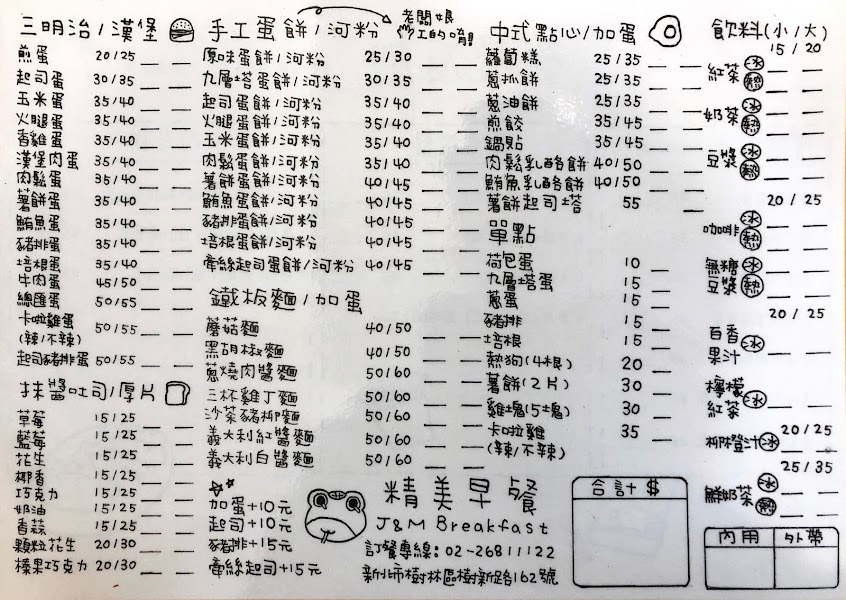 三明治/漢堡
煎蛋 20/25
起司蛋 30/35
玉米蛋 35/40
火腿蛋 35/40
香雞蛋 35/40
漢堡肉蛋 35/40
肉鬆蛋 35/40
薯餅蛋 35/40
鮪魚蛋 35/40
豬排蛋 35/40
培根蛋 35/40
牛肉蛋 45/50
總匯蛋 50/55
卡啦雞蛋 50/55
(辣/不辣)
起司豬排蛋 50/55
抹醬吐司/厚片
草莓 15/25
藍莓 15/25
花生 15/25
椰香 15/25
巧克力 15/25
奶油 15/25
香蒜 15/25
顆粒花生 20/30
榛果巧克力 20/30
手工蛋餅/河粉
老闆娘
手工的唷!!
原味蛋餅/河粉 25/30
九層塔蛋餅/河粉 30/35
起司蛋餅/河粉 35/40
火腿蛋餅/河粉 35/40
玉米蛋餅/河粉 35/40
肉鬆蛋餅/河粉 35/40
薯餅蛋餅/河粉 40/45
鮪魚蛋餅/河粉 40/45
豬排蛋餅/河粉 40/45
培根蛋餅/河粉 40/45
牽絲起司蛋餅/河粉 40/45
鐵板麵/加蛋
蘑菇麵 40/50
黑胡椒麵 40/50
蔥燒肉醬麵 50/60
三杯雞丁麵 50/60
沙茶豬柳麵 50/60
義大利紅醬麵 50/60
義大利白醬麵 50/60
加蛋+10元
起司+10元
豬排+15元
牽絲起司+15元
中式點心/加蛋
蘿蔔糕 25/35
蔥抓餅 25/35
蔥油餅 25/35
煎餃 35/45
鍋貼 35/45
肉鬆乳酪餅 40/50
鮪魚乳酪餅 40/50
薯餅起司塔 55
單點
荷包蛋 10
九層塔蛋 15
蔥蛋 15
豬排 15
培根 15
熱狗(4根) 20
薯餅(2片) 30
雞塊(5塊) 30
卡啦雞 35
(辣/不辣)
精美早餐
J&M Breakfast
訂餐專線:02-26811122
新北市樹林區樹新路162號
合計 $
飲料(小/大)
15/20
紅茶 冰
熱
奶茶 冰
熱
豆漿 冰
熱
20/25
咖啡 冰
熱
無糖豆漿 冰
熱
20/25
百香果汁 冰
檸檬紅茶 冰
20/25
柳橙汁 冰
25/35
鮮奶茶 冰
熱
內用 外帶